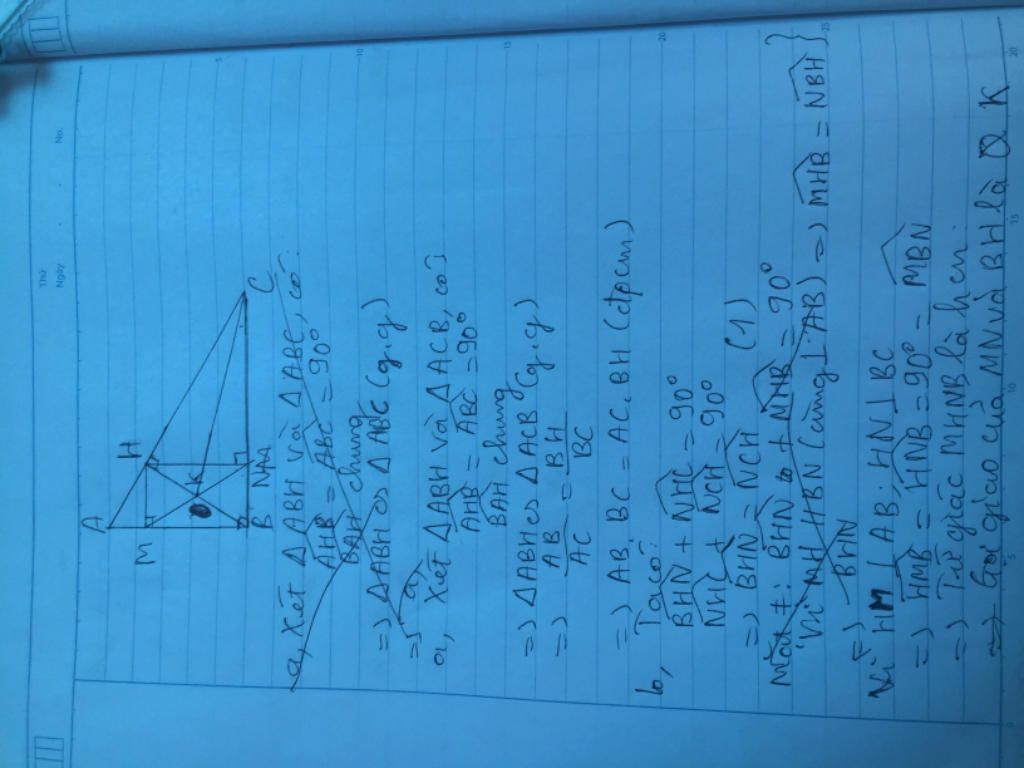 Thứ
Ngày
No.
A
H
M
K
O
B
N
C
a, Xét Δ ABH và Δ ABC, có:
AHB = ABC = 90°
BAH chung
=> ΔABH ∽ Δ ABC (g.g)
=> a,
a, Xét ΔABH và Δ ACB, có
AHB = ABC = 90°
BAH chung
=> Δ ABH ∽ Δ ACB (g.g)
=> AB/AC = BH/BC
=> AB. BC = AC. BH (đpcm)
b, Ta có:
BHN + NHC = 90°
NHC + NCH = 90°
=> BHN = NCH (1)
Mặt ≠: BHN + MHB = 90°
Vì MH HBN (cùng ⊥ AB) => MHB = NBH }
=> BHN
Vì HM ⊥ AB; HN ⊥ BC
=> HMB = HNB = 90° = MBN
=> Tứ giác MHNB là hcn.
=> Gọi giao của MN và BH là O K
5
10
15
20
25
0
5
10
15
20